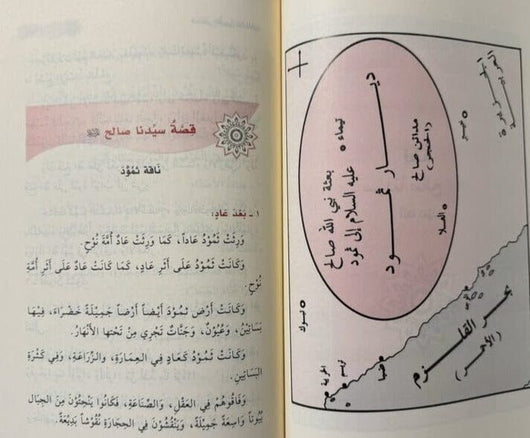 قِصَّةُ سَيِّدِنَا صَالِحٍ
نَاقَةُ ثَمُوْدَ
١ ـ بَعْدَ عَادٍ:
وَرِثَتْ ثَمُوْدُ عَاداً، كَمَا وَرِثَتْ عَادُ أُمَّةَ نُوْحٍ.
وَكَانَتْ ثَمُوْدُ عَلَى أَثَرِ عَادٍ، كَمَا كَانَتْ عَادُ عَلَى أَثَرِ أُمَّةِ
نُوْحٍ.
وَكَانَتْ أَرْضُ ثَمُوْدَ أَيْضاً أَرْضاً جَمِيْلَةً خَضْرَاءَ، فِيْهَا
بَسَاتِيْنُ، وَعُيُوْنٌ، وَجَنَّاتٌ تَجْرِي مِنْ تَحْتِهَا الأَنْهَارُ.
وَكَانَتْ ثَمُوْدُ كَعَادٍ فِي العِمَارَةِ، وَالزِّرَاعَةِ، وَفِي كَثْرَةِ
البَسَاتِيْنِ.
وَفَاقُوْهُمْ فِي العَقْلِ، وَالصِّنَاعَةِ، فَكَانُوا يَنْحِتُوْنَ مِنَ الجِبَالِ
بُيُوْتاً وَاسِعَةً جَمِيْلَةً، وَيَنْقُشُوْنَ فِي الحِجَارَةِ نُقُوْشاً بَدِيْعَةً.
الجزيرة
العربية
خيبر
مدائن صالح
(الحجر)
العلا
ديار ثمود
تيماء
بعثة نبي الله صالح
عليه السلام إلى ثمود
تبوك
بحر القلزم
(الأحمر)
ضبا